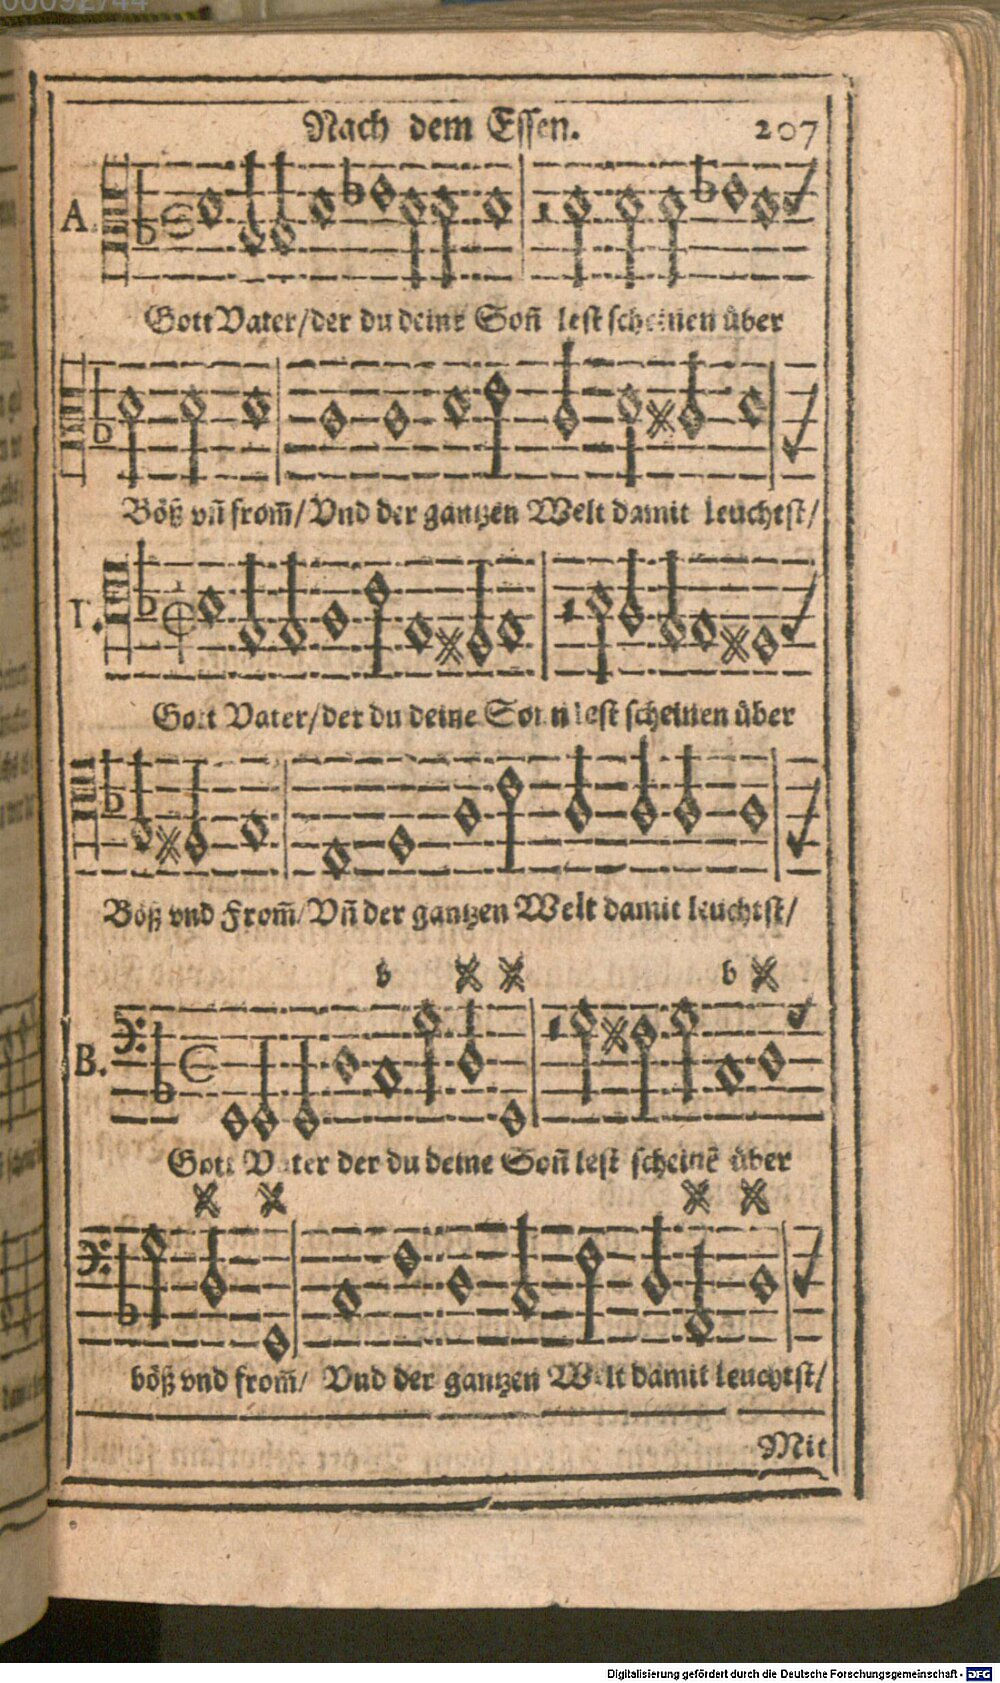 00092744
Nach dem Essen. 207
A.
Gott Vater/der du deine Soñ lest scheinen über
Böß vñ from̃/Vnd der gantzen Welt damit leuchtst/
T.
Gott Vater/der du deine Sonn lest scheinen über
Böß vnd From̃/Vñ der gantzen Welt damit leuchtst/
B.
Gott Vater der du deine Soñ lest scheinē über
böß vnd from̃/ Vnd der gantzen Welt damit leuchtst/
Mit
Digitalisierung gefördert durch die Deutsche Forschungsgemeinschaft - DFG